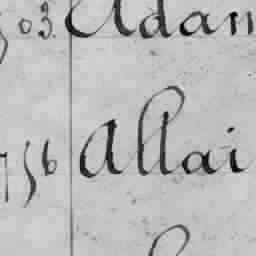 03. Adam
756 Allai